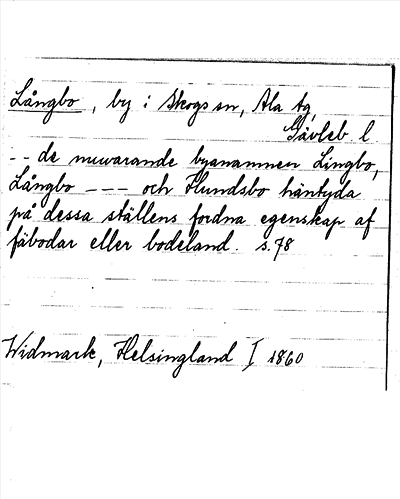 Långbo, by i Skogs sn, Ala tg,
Gävleb l
-- de nuvarande byanamnen Lingbo,
Långbo --- och Hundsbo häntyda
på dessa ställens fordna egenskap af
fäbodar eller bodeland. s. 78
Widmark, Helsingland I 1860